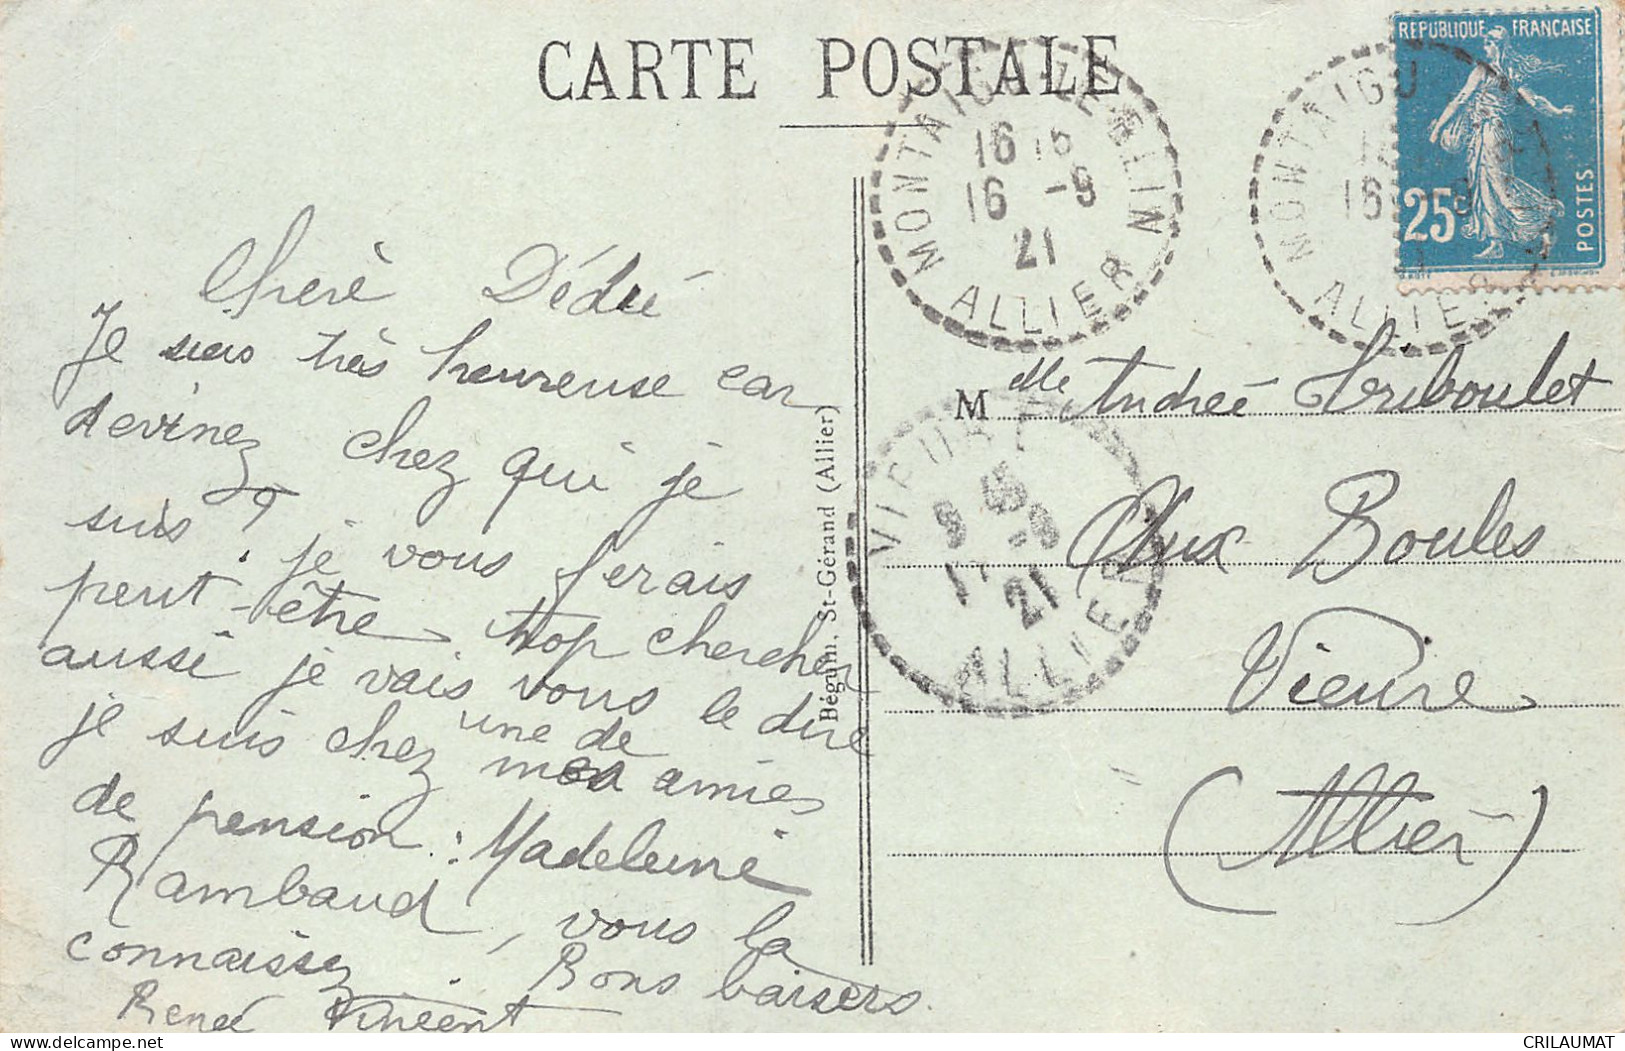 CARTE POSTALE
RÉPUBLIQUE FRANÇAISE
25c
POSTES
MONTAIGU-LE-BLIN
16 15
16 -9
21
ALLIER
MONTAIGU
16 9
ALLIER
VIEURE
9 45
17 -9
21
ALLIER
Béguin. St-Gérand (Allier)
Cherè Dédée
Je suis très heureuse car
devinez chez qui je
suis ? je vous ferais
peut-être trop chercher
aussi je vais vous le dire
je suis chez une de mes amies
de pension : Madeleine
Rambaud, vous la
connaissez. Bons baisers.
Renée Vincent
M elle Andreé Triboulet
Aux Boules
Vieure
(Allier)
CRILAUMAT